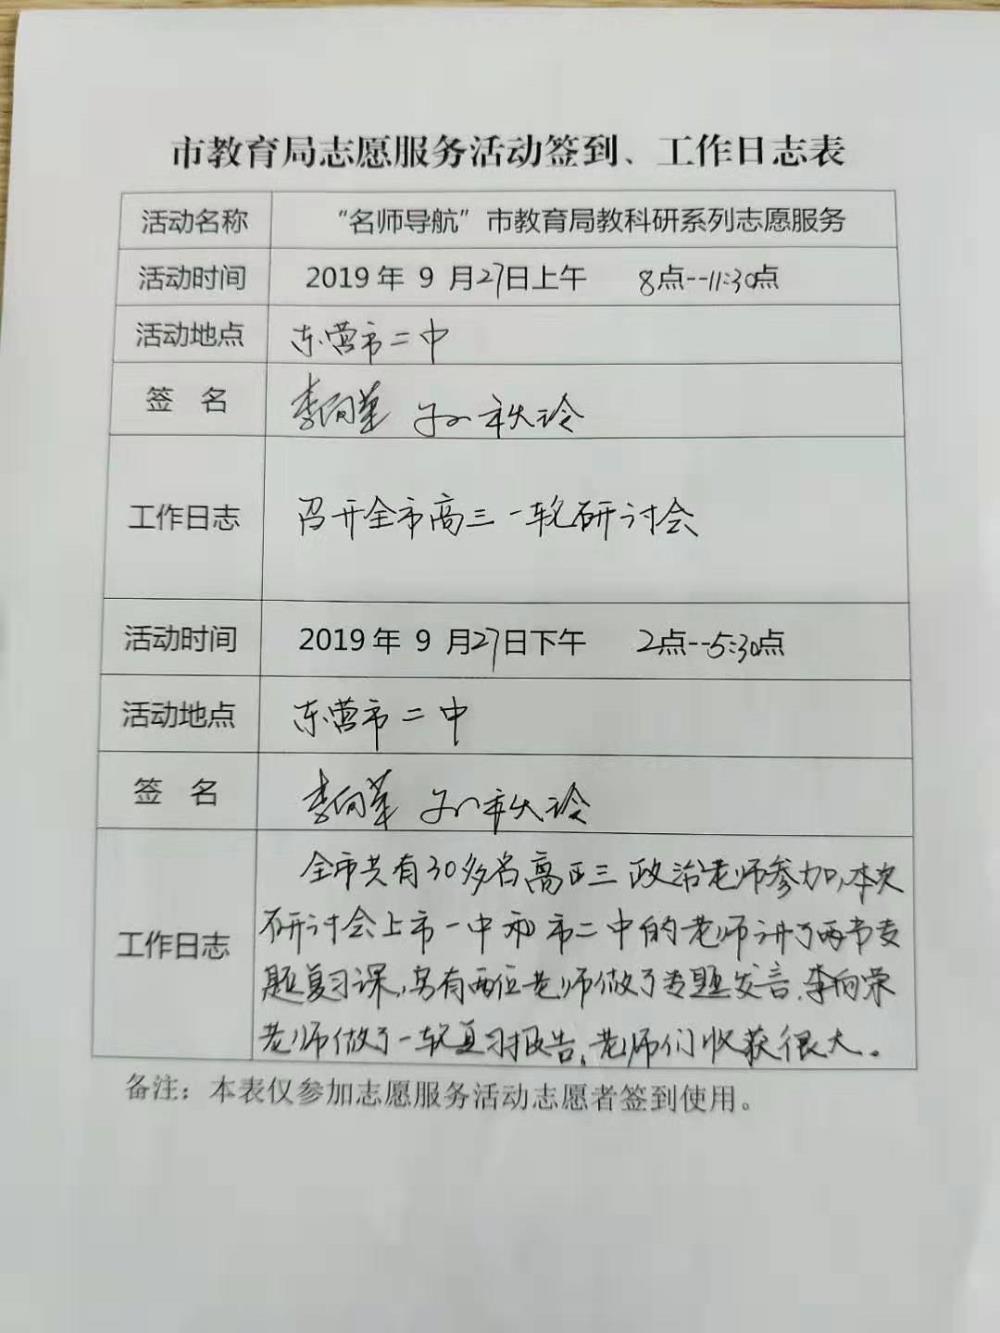 市教育局志愿服务活动签到、工作日志表
活动名称 “名师导航”市教育局教科研系列志愿服务
活动时间 2019年 9 月27日上午 8点--11:30点
活动地点 东营市二中
签 名 李向荣 孙秋玲
工作日志 召开全市高三一轮研讨会
活动时间 2019年 9 月27日下午 2点--5:30点
活动地点 东营市二中
签 名 李向荣 孙秋玲
全市共有30多名高三政治老师参加,本次
工作日志 研讨会上市一中和市二中的老师讲了两节专
题复习课,另有两位老师做了专题发言.李向荣
老师做了一轮复习报告,老师们收获很大。
备注：本表仅参加志愿服务活动志愿者签到使用。